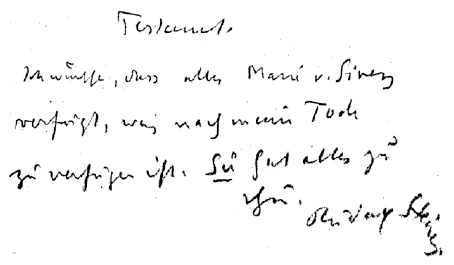 Testament.
Ich wünsche, dass alles Marie v. Sivers
verfügt, was nach mein Tode
zu verfügen ist. Sie hat alles zu
thun.
Rudolf Steiner.